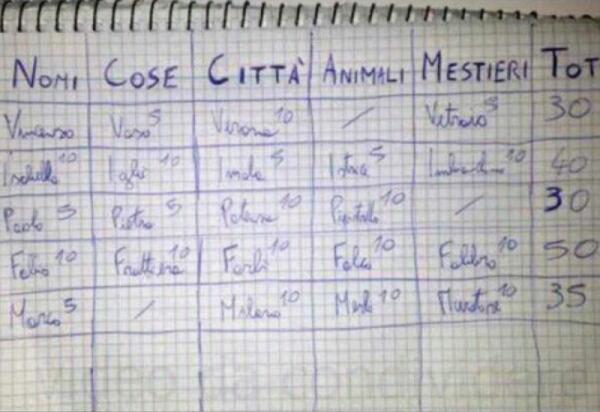 NOMI COSE CITTÀ ANIMALI MESTIERI TOT
Vincenzo Vaso 5 Verona 10 / Vetraio 5 30
Isabella 10 Igloo 10 Imola 5 Istrice 5 Imbianchino 10 40
Paolo 5 Pietra 5 Potenza 10 Pipistrello 10 / 30
Fabio 10 Fruttiera 10 Forlì 10 Falco 10 Fabbro 10 50
Marco 5 / Milano 10 Merlo 10 Muratore 10 35